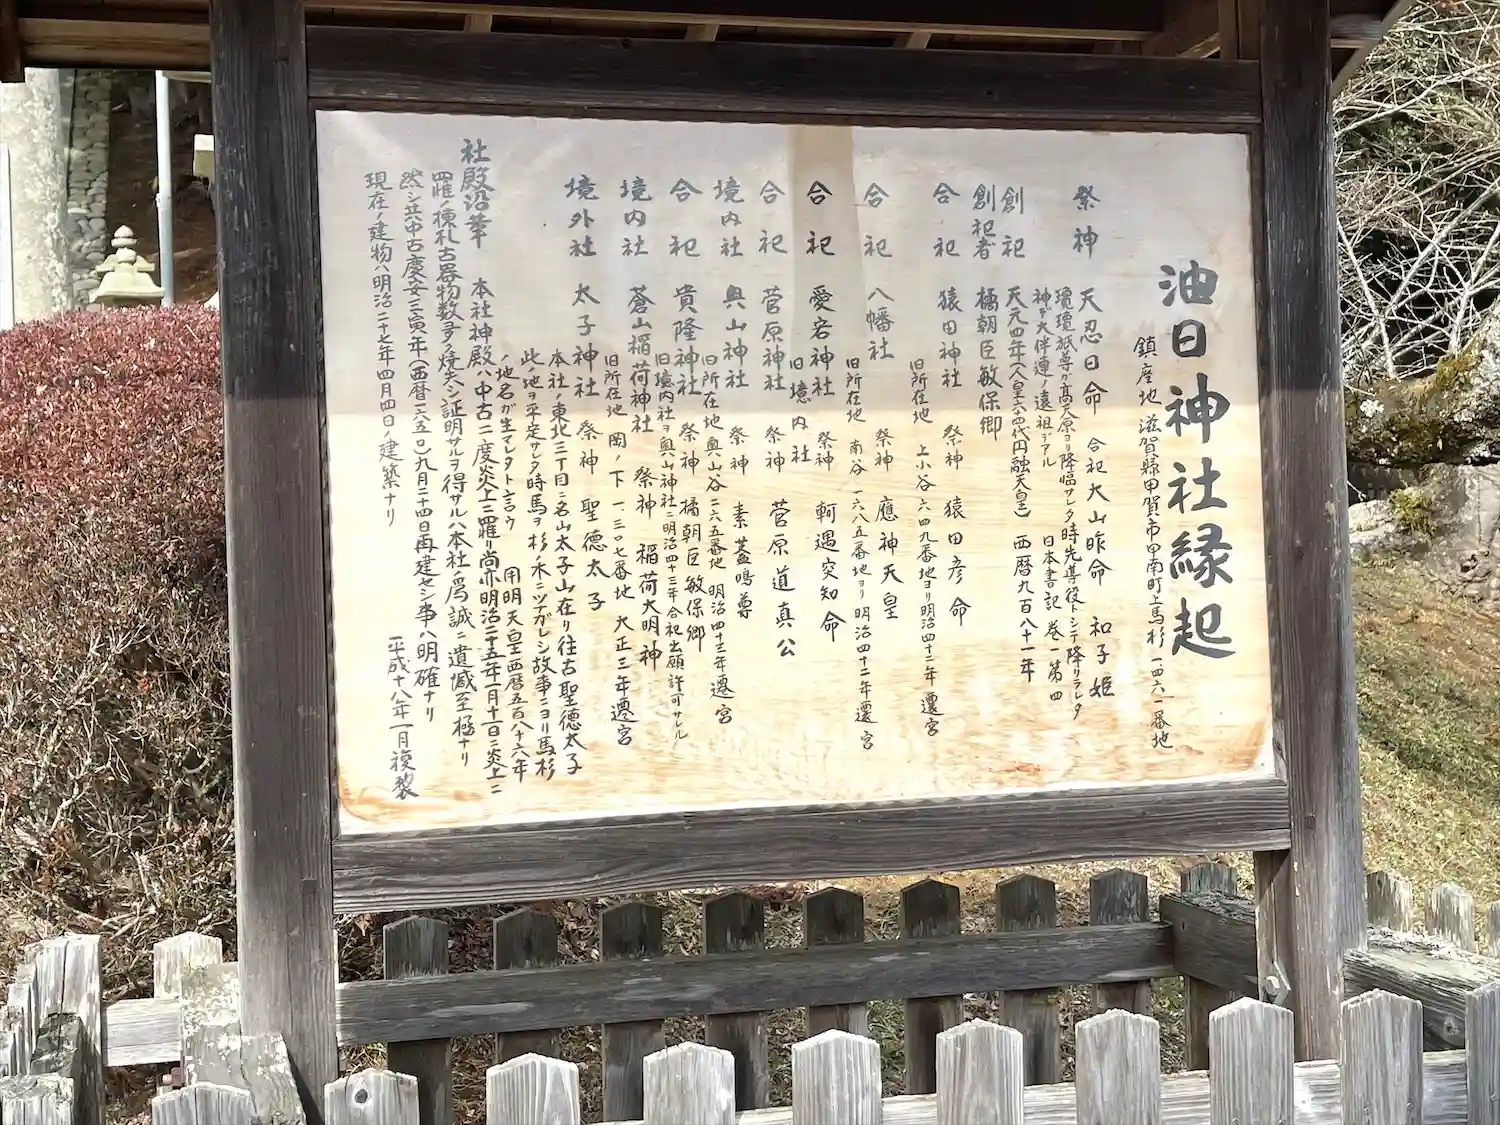 油日神社縁起
鎮座地 滋賀縣甲賀市甲南町上馬杉一四六一番地
祭神 天忍日命 合祀大山昨命 和子姫
瓊瓊祇尊ガ高天原ヨリ降臨サレタ時先導役トシテ降リラレタ
神デ大伴連ノ遠祖デアル 日本書記 巻一第四
創祀 天元四年(人皇六十四代円融天皇) 西暦九百八十一年
創祀者 橘朝臣敏保卿
合祀 猿田神社 祭神 猿田彦命
旧所在地 上小谷六四九番地ヨリ明治四十二年 遷宮
合祀 八幡社 祭神 應神天皇
旧所在地 南谷一六八五番地ヨリ明治四十二年遷宮
合祀 愛宕神社 祭神 軻遇突知命
旧境内社
合祀 菅原神社 祭神 菅原道真公
境内社 奥山神社 祭神 素盖鳴尊
旧所在地 奥山谷二六五番地 明治四十三年遷宮
合祀 貴隆神社 祭神 橘朝臣敏保卿
旧境内社ヲ奥山神社ニ明治四十三年合祀出願許可サレル
境内社 蒼山稲荷神社 祭神 稲荷大明神
旧所在地 岡ノ下一、三〇七番地 大正三年遷宮
境外社 太子神社 祭神 聖徳太子
本社ノ東北三丁目ニ名山太子山在リ往古聖徳太子
此ノ地ヲ平定サレタ時馬ヲ杉ノ木ニツナガレシ故事ニヨリ馬杉
ノ地名ガ生マレタト言ウ 用明天皇西暦五百八十六年
社殿沿革 本社神殿ハ中古二度炎上ニ罹リ尚亦明治二十五年一月十一日ニ炎上ニ
罹ノ棟札古器物数多ヲ焼失シ証明サルヲ得サルハ本社ノ為誠ニ遺憾至極ナリ
然シ共中古慶安三寅年(西暦一六五〇)九月二十四日再建セシ事ハ明確ナリ
現在ノ建物ハ明治二十七年四月四日ノ建築ナリ
平成十八年一月複製